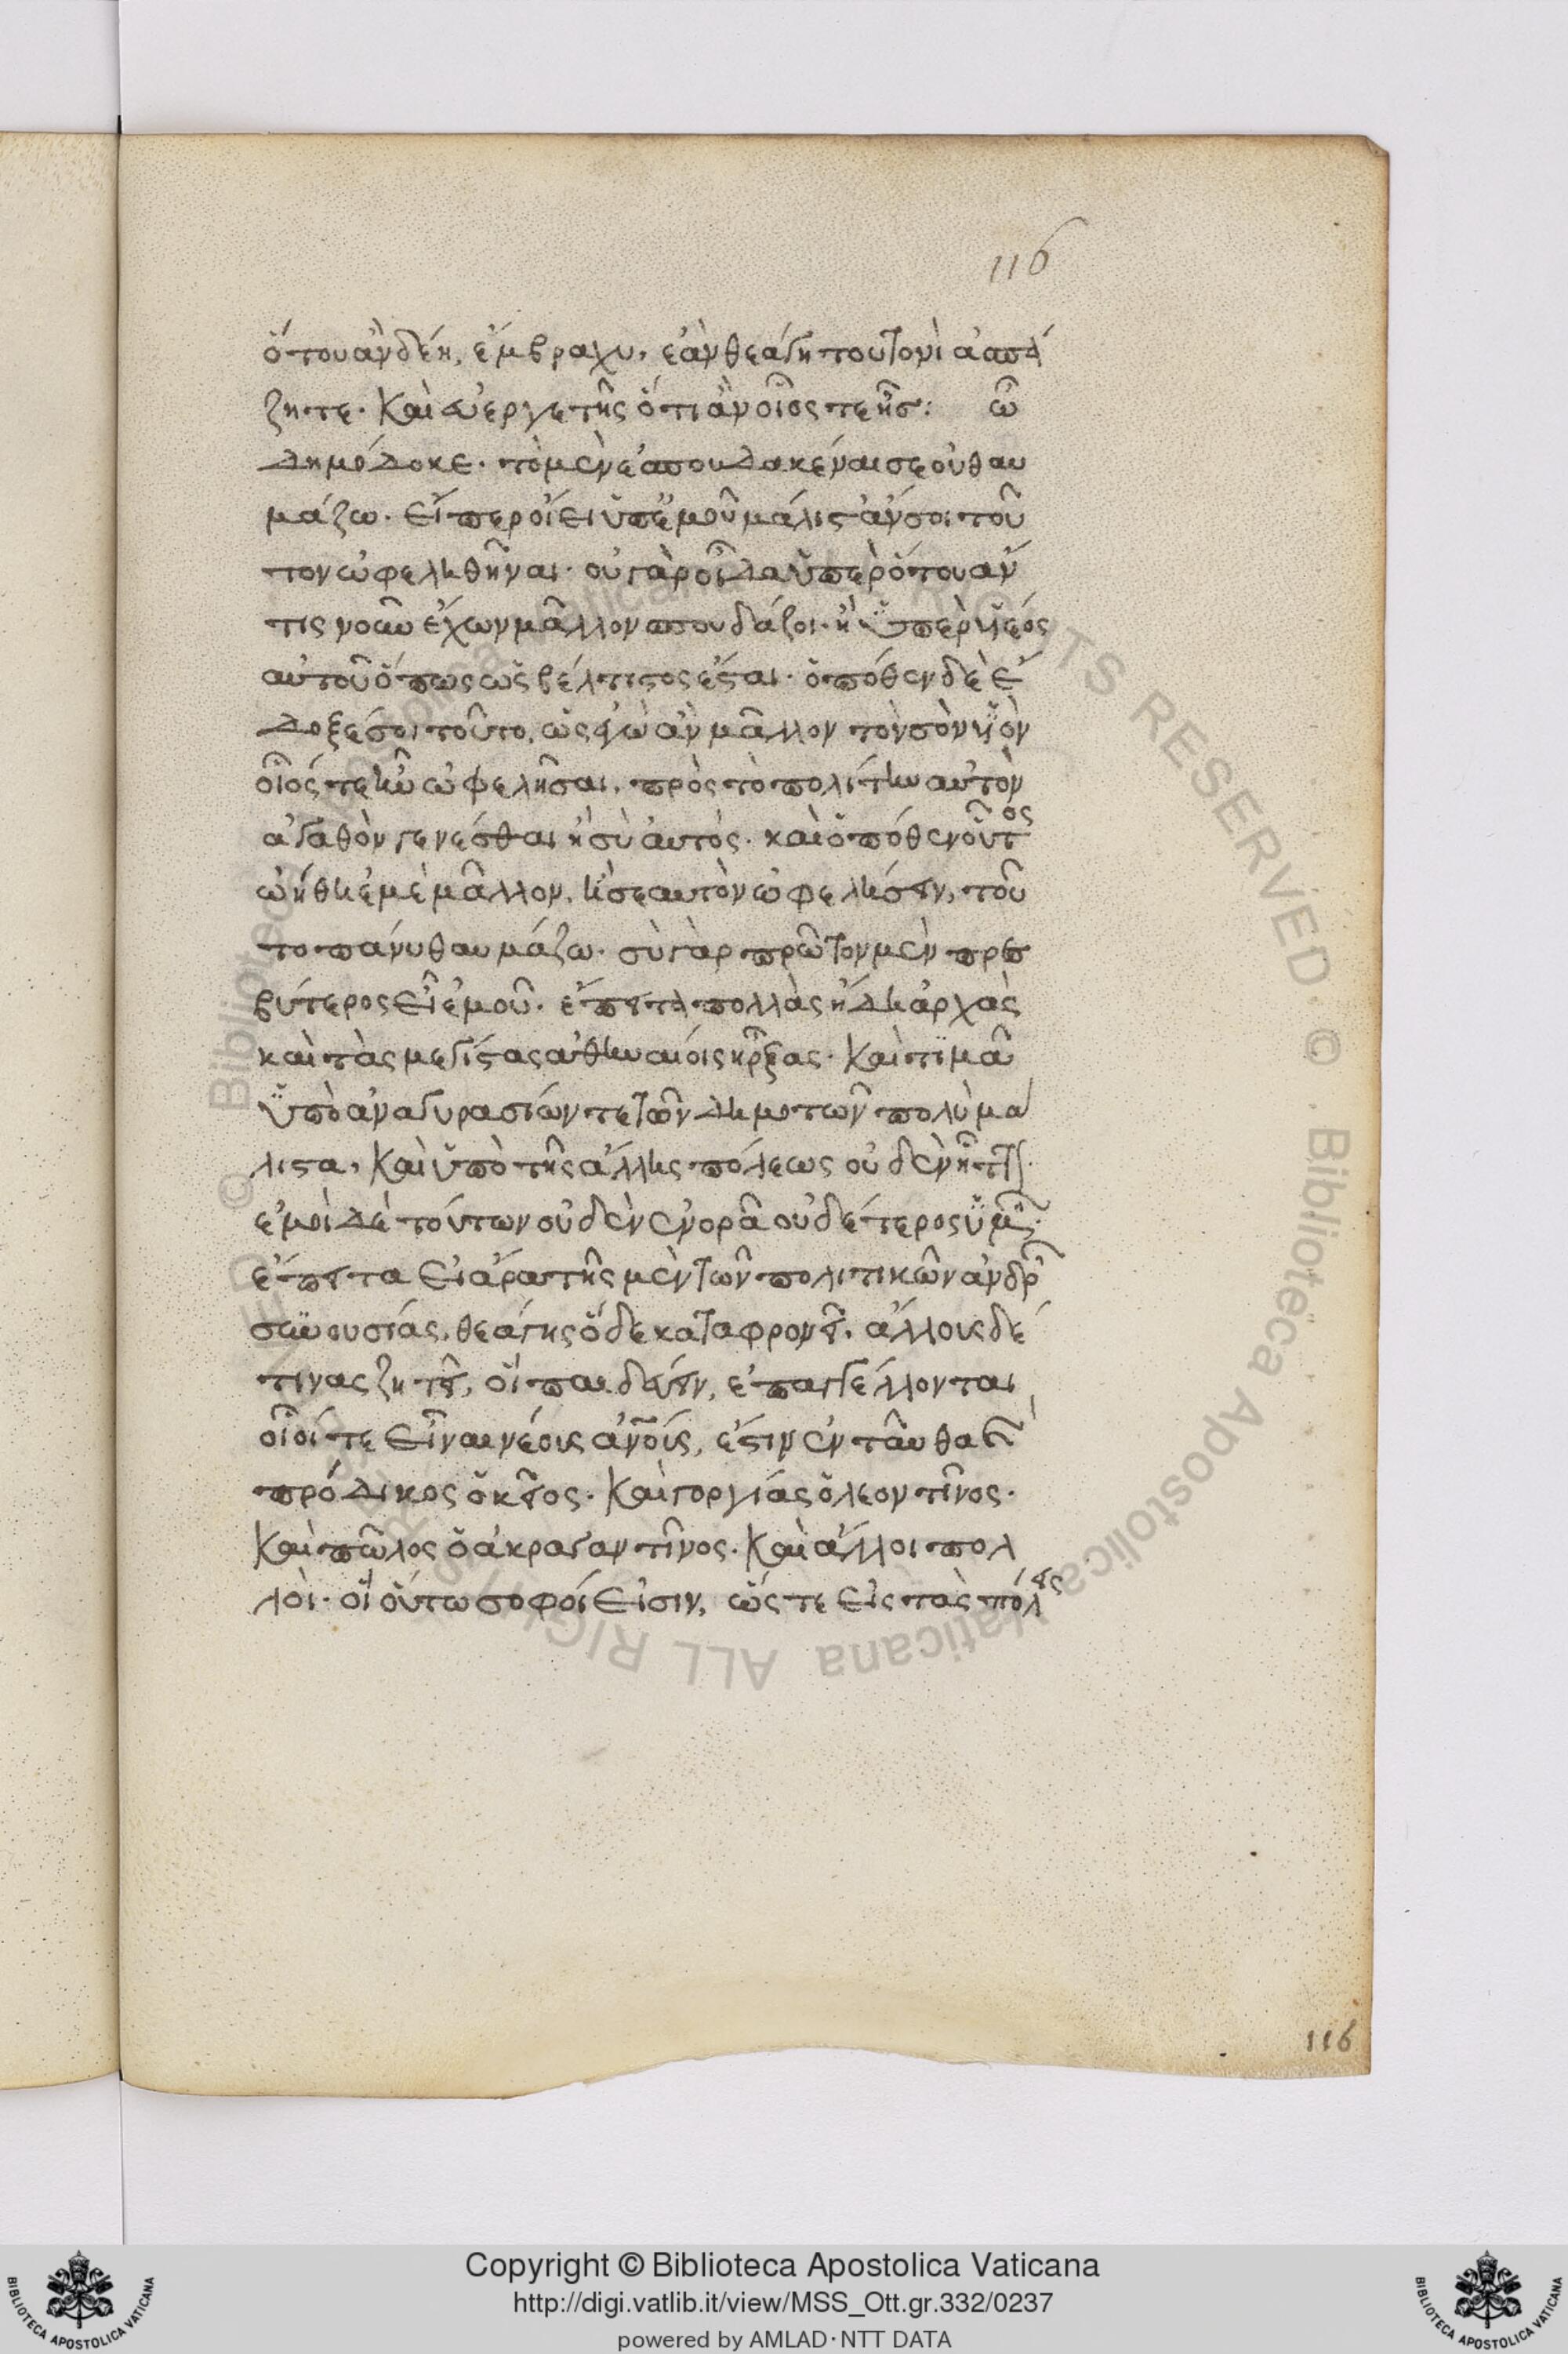 116
ὅτου ἂν δέῃ, ἔμβραχυ, ἐὰν θεάγη τουτονὶ ἀσπά
ζητε. Καὶ εὐεργετῇς ὅτι ἂν οἷός τε ᾖς: ὦ
Δημόδοκε. τὸ μὲν ἐσπουδακέναι σε οὐ θαυ
μάζω. εἴπερ οἴει ὑπ' ἐμοῦ μάλιστ' ἄν σοι τοῦ
τον ὠφεληθῆναι. οὐ γὰρ οἶδα ὑπὲρ ὅτου ἄν
τις νοῦν ἔχων μᾶλλον σπουδάζοι. ἢ ὑπὲρ υἱέος
αὑτοῦ ὅπως ὡς βέλτιστος ἔσται. ὁπόθεν δὲ ἔ
δοξέ σοι τοῦτο, ὡς ἐγὼ ἂν μᾶλλον τὸν σὸν υἱὸν
οἷός τε ἦν ὠφελῆσαι, πρὸς τὸ πολίτην αὐτὸν
ἀγαθὸν γενέσθαι ἢ σὺ αὐτὸς. καὶ ὁπόθεν οὗτος
ᾠήθη ἐμὲ μᾶλλον, ἢ σεαυτὸν ὠφελήσειν, τοῦ
το πάνυ θαυμάζω. σὺ γὰρ πρῶτον μὲν πρεσ
βύτερος εἶ ἐμοῦ. ἔπειτα πολλὰς ἤδη ἀρχὰς
καὶ τὰς μεγίστας ἀθηναίοις ἦρξας. Καὶ τιμᾶ
ὑπὸ ἀναγυρασίων τε τῶν δημοτῶν πολὺ μά
λιστα, Καὶ ὑπὸ τῆς ἄλλης πόλεως οὐδενὸς ἧττον.
ἐμοὶ δὲ τούτων οὐδὲν ἐνορᾶ οὐδέτερος ὑμῶν.
ἔπειτα εἰ ἄρα τῆς μὲν τῶν πολιτικῶν ἀνδρῶν
συνουσίας, θεάγης ὅδε καταφρονεῖ, ἄλλους δέ
τινας ζητεῖ, οἳ παιδεύειν, ἐπαγγέλλονται
οἷοί τε εἶναι νέους ἀνοὺς, ἔστιν ἐνταῦθα καὶ
πρόδικος ὁ κεῖος. Καὶ γοργίας ὁ λεοντῖνος.
Καὶ πῶλος ὁ ἀκραγαντῖνος. Καὶ ἄλλοι πολ
λοὶ. οἳ οὕτω σοφοί εἰσιν, ὥστε εἰς τὰς πόλεις
116
© Biblioteca Apostolica Vaticana ALL RIGHTS RESERVED
Copyright © Biblioteca Apostolica Vaticana
http://digi.vatlib.it/view/MSS_Ott.gr.332/0237
powered by AMLAD·NTT DATA
BIBLIOTECA APOSTOLICA VATICANA
BIBLIOTECA APOSTOLICA VATICANA